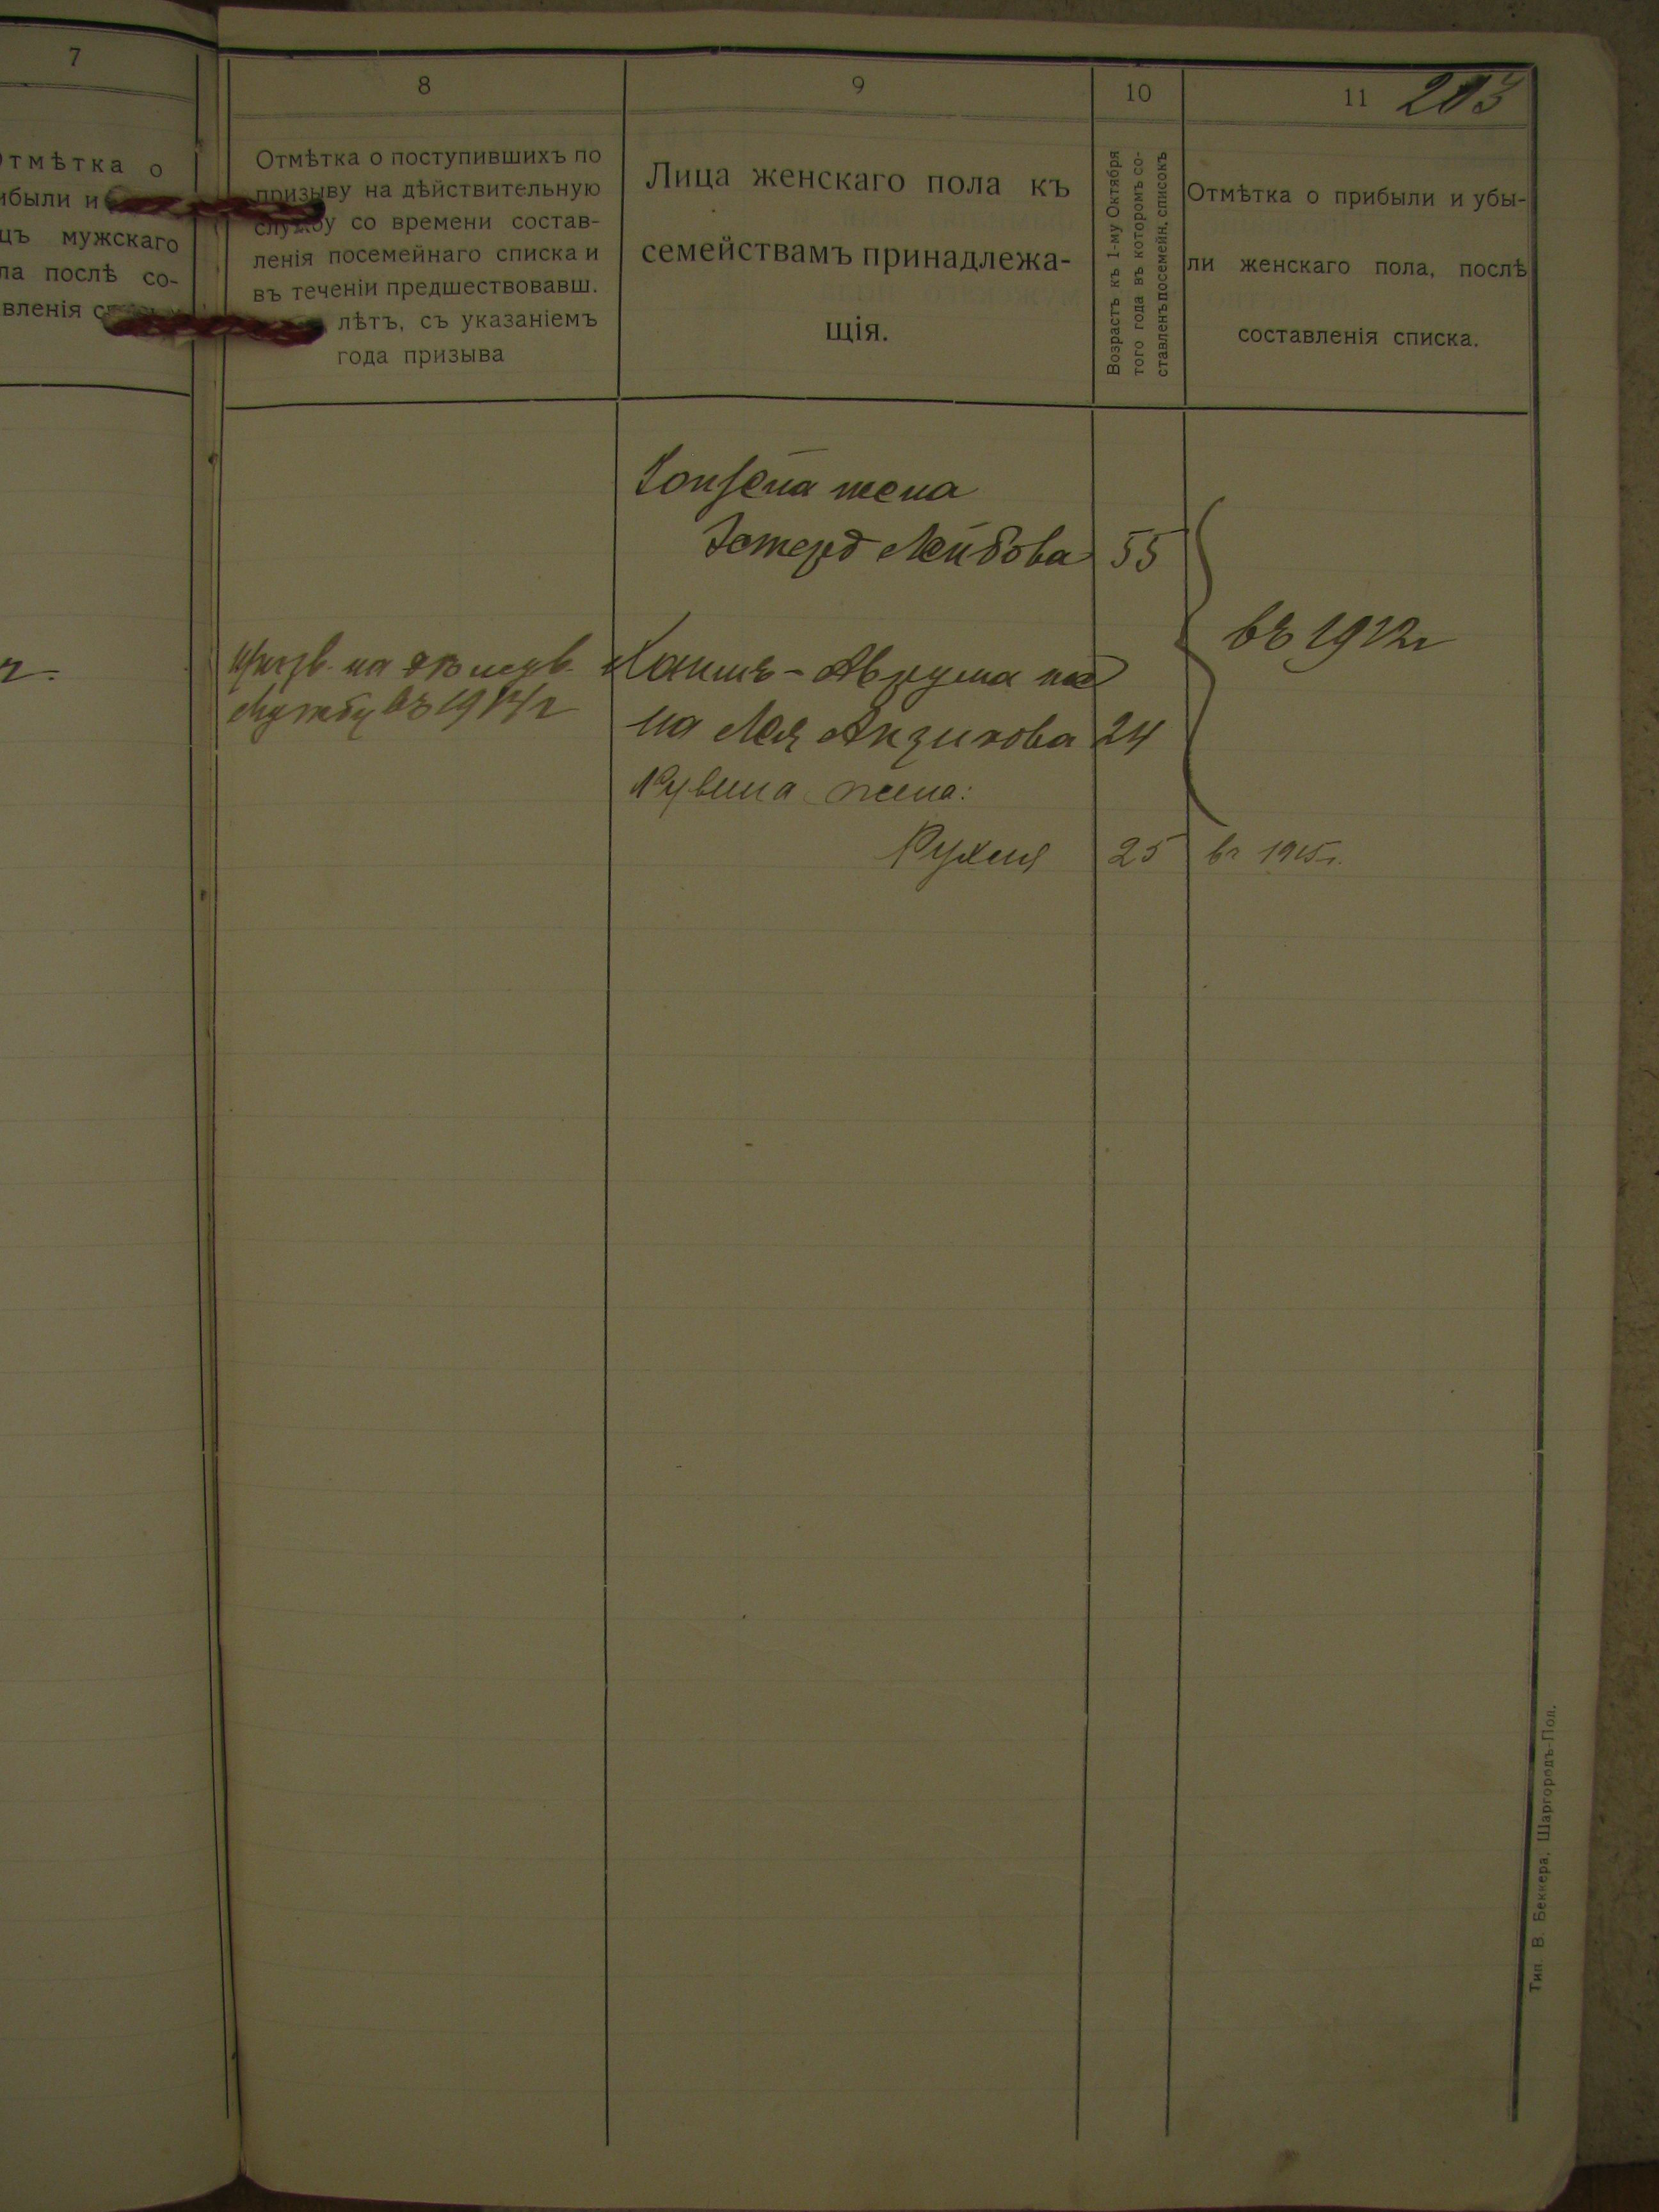 7
Отмѣтка о
ибыли и
цъ мужскаго
ла послѣ со-
вленія
г.
8
Отмѣтка о поступившихъ по
призыву на дѣйствительную
службу со времени состав-
ленія посемейнаго списка и
въ теченіи предшествовавш.
лѣтъ, съ указаніемъ
года призыва
на
службу въ 1914 г
9
Лица женскаго пола къ
семействамъ принадлежа-
щія.
жена
Эстеръ Лейбова
Хаимъ-Аврума же
на Лея
Рувина жена:
Рухля
10
Возрастъ къ 1-му Октября
того года въ которомъ со-
ставленъ посемейн. списокъ
55
24
25
11
203
Отмѣтка о прибыли и убы-
ли женскаго пола, послѣ
составленія списка.
въ 1912 г
въ 1915 г.
Тип. В. Беккера, Шаргородъ-Под.